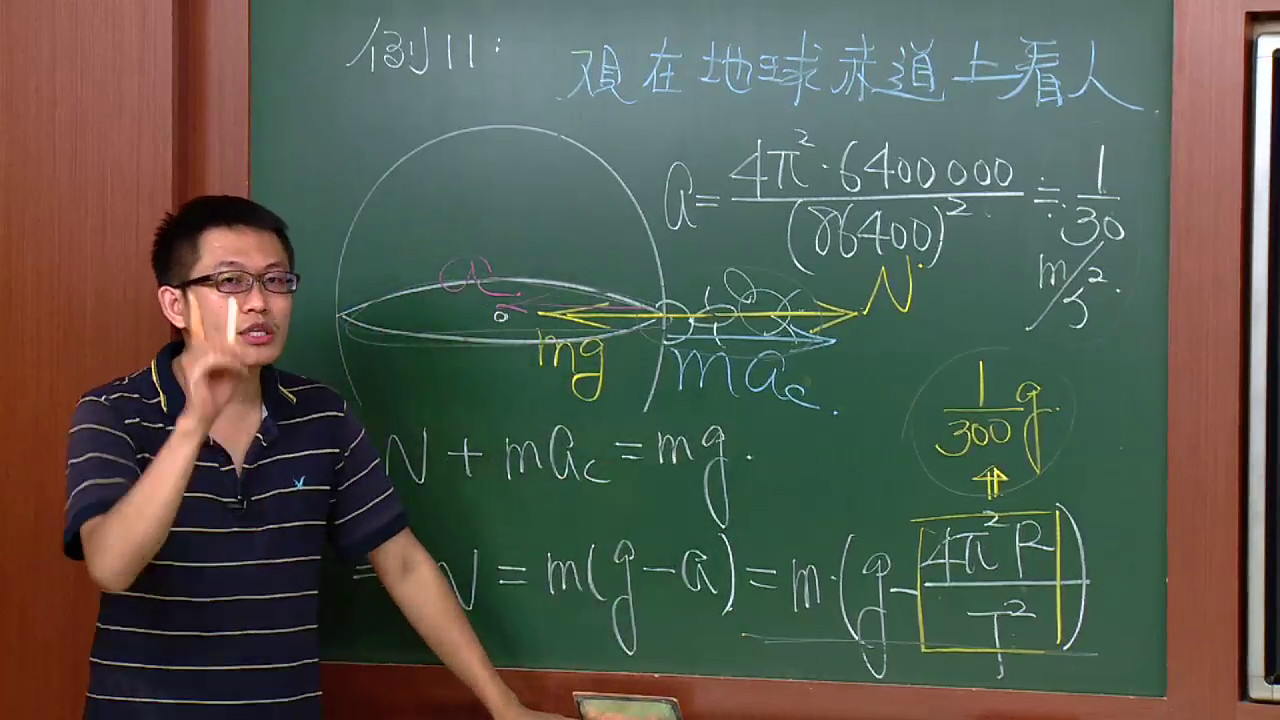 例11:
現在地球赤道上看人
a = 4π²·6400000 / (86400)² ≒ 1/30 m/s².
a
mg
N
mac.
1/300 g
N + mac = mg.
N = m(g-a) = m·(g - 4π²R / T²)